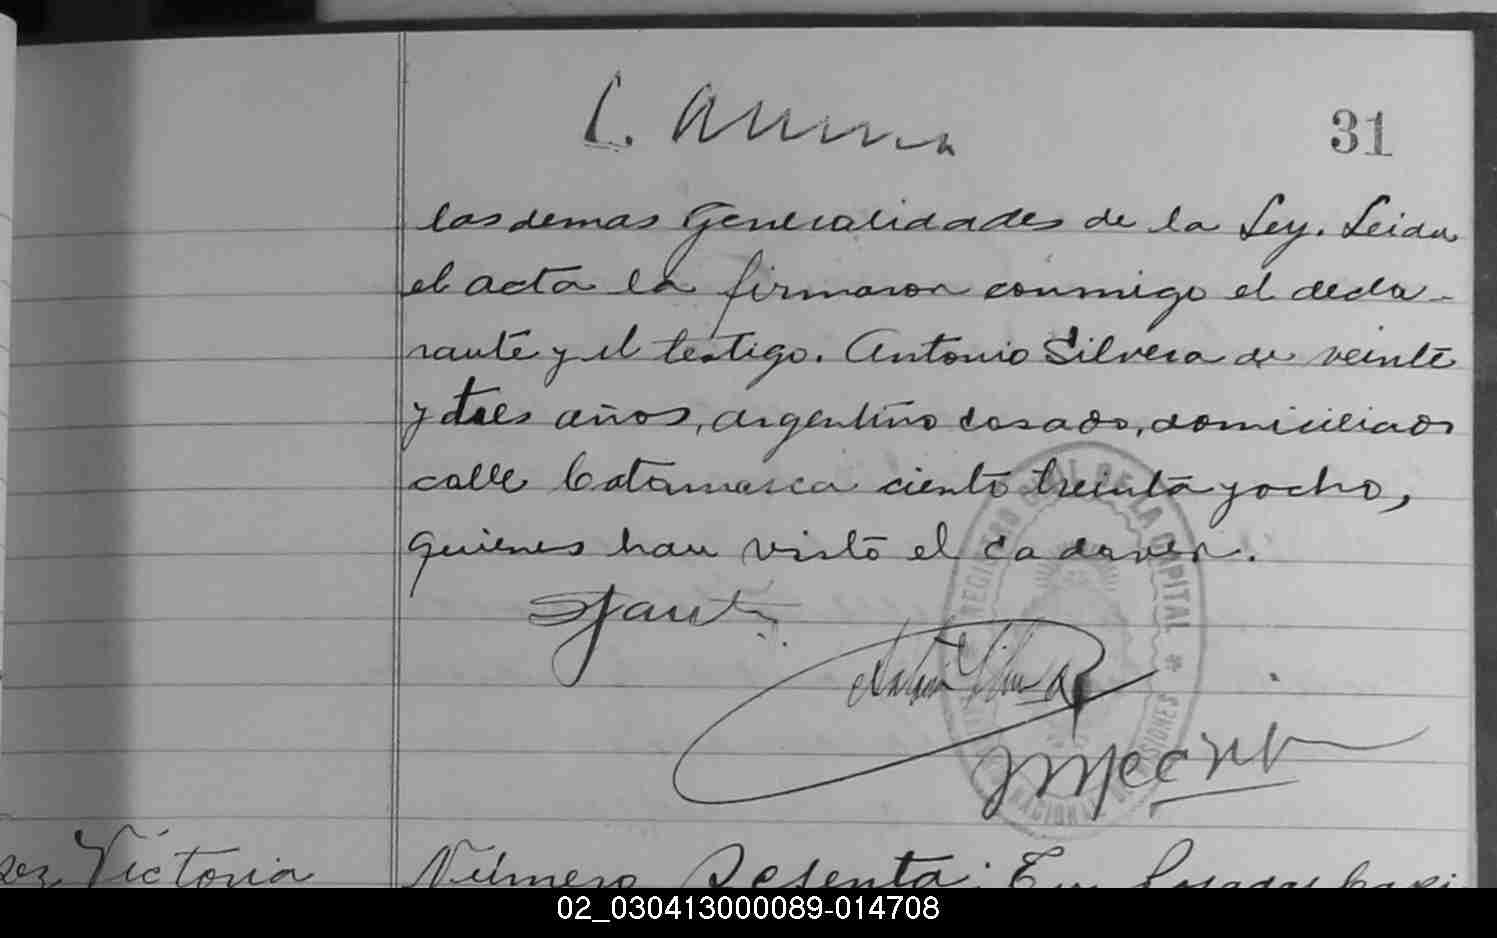 31
las demas Generalidades de la Ley. Leida
el acta la firmaron conmigo el decla-
rante y el testigo. Antonio Silvera de veinte
y tres años, argentino casado, domiciliado
calle Catamarca ciento treinta y ocho,
quienes han visto el cadaver.
REGISTRO CIVIL DE LA CAPITAL
Victoria
Número Sesenta. En
02_030413000089-014708